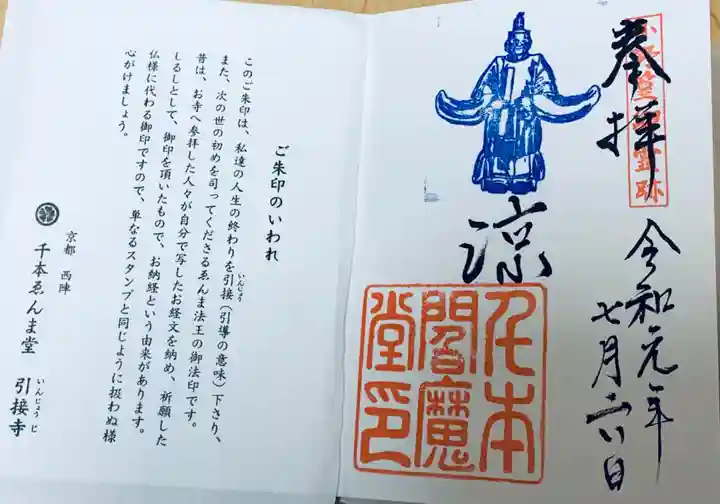 奉拝
小野篁卿霊跡
令和元年
七月二八日
涼
千本
閻魔
堂印
ご朱印のいわれ
このご朱印は、私達の人生の終わりを引接(引導の意味)下さり、
いんじょう
また、次の世の初めを司ってくださるゑんま法王の御法印です。
昔は、お寺へ参拝した人々が自分で写したお経文を納め、祈願した
しるしとして、御印を頂いたもので、お納経という由来があります。
仏様に代わる御印ですので、単なるスタンプと同じように扱わぬ様
心がけましょう。
京都 西陣
千本ゑんま堂 引接寺
いんじょうじ